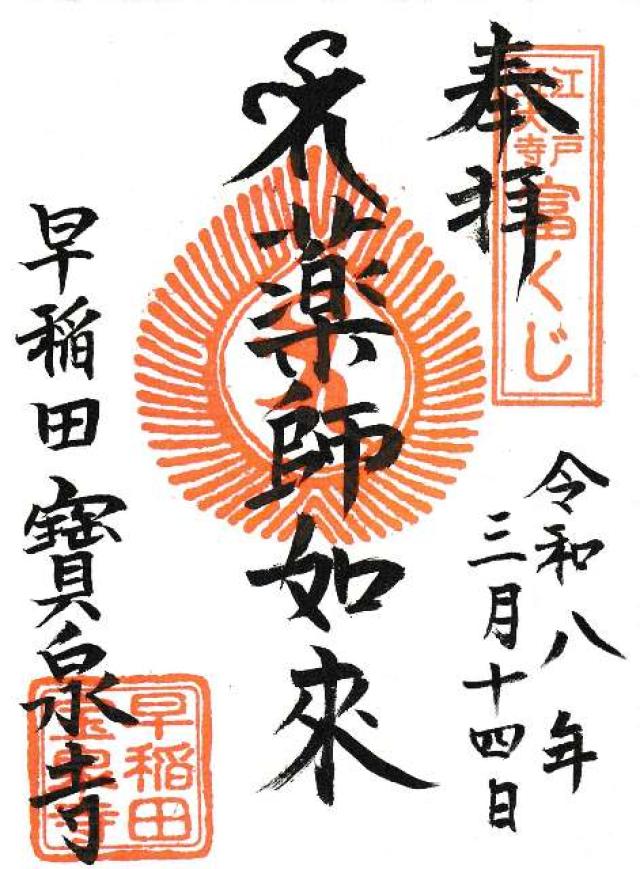 奉拝
江戸
三大寺
富くじ
令和八年
三月十四日
薬師如來
早稲田 寶泉寺
早稲田
宝泉寺